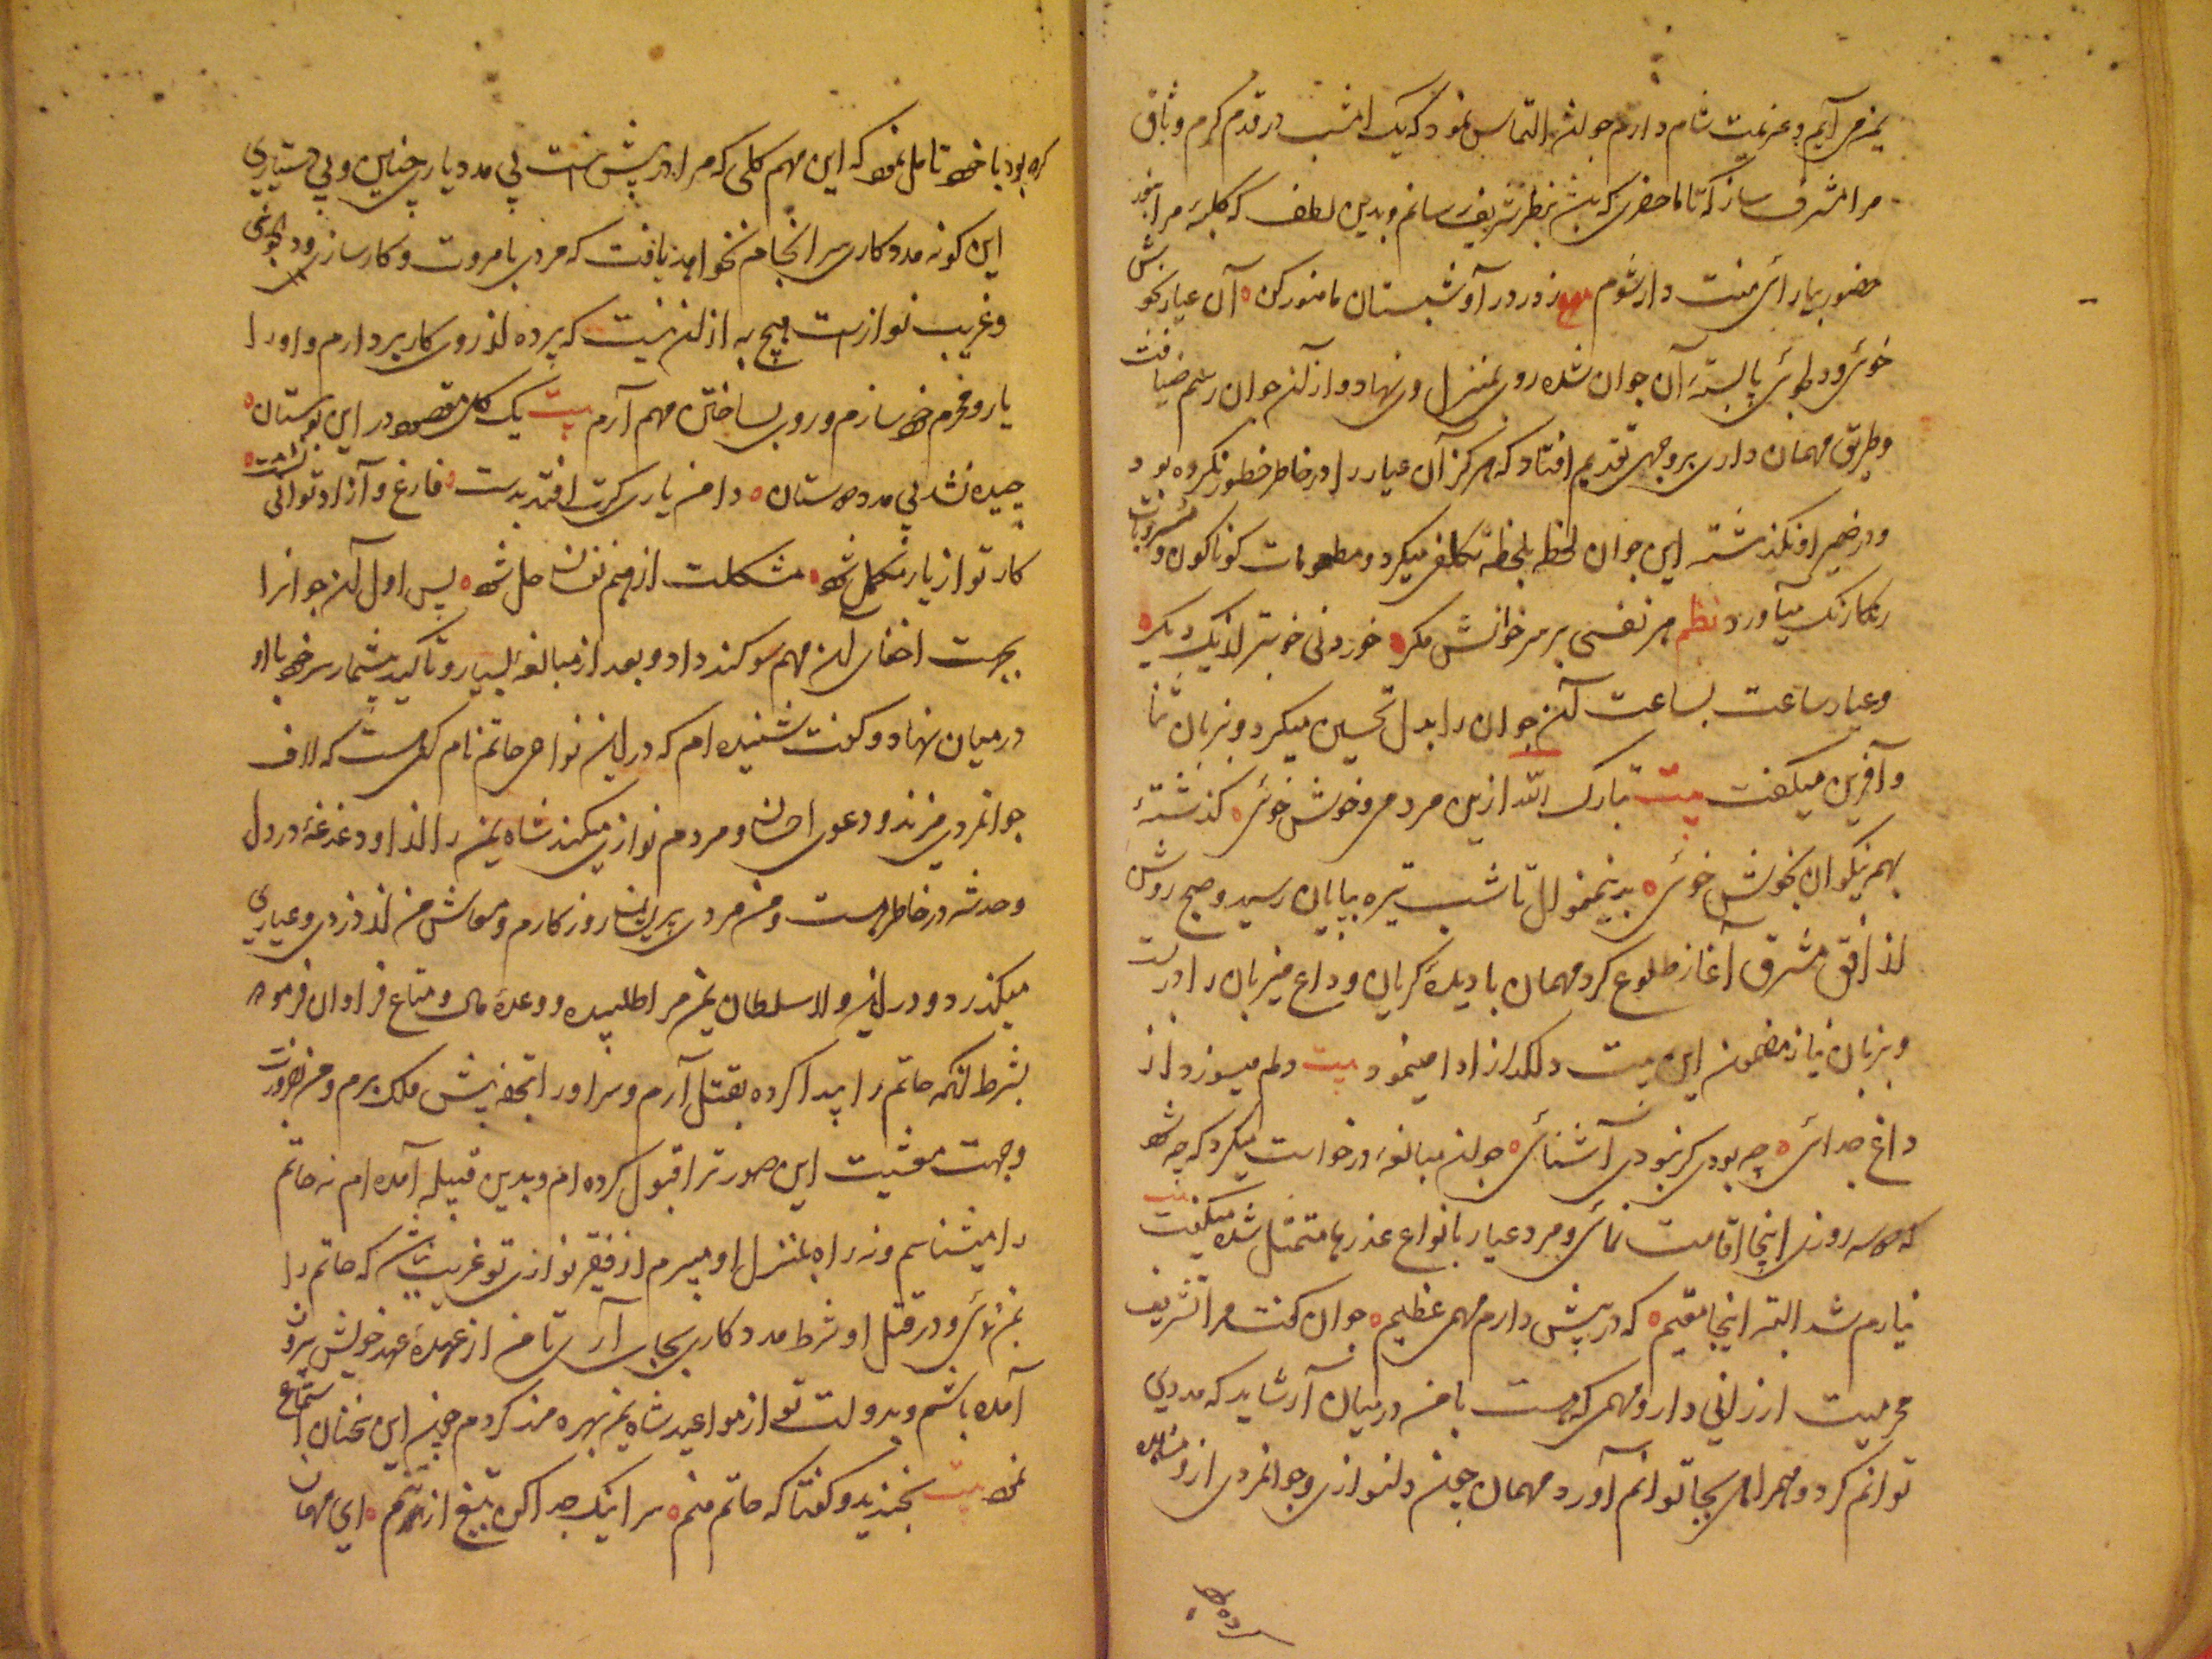 یمن می آیم و عزیمت شام دارم جوان التماس نمود که یک امشب در قدم کرم وثاق
مرا مشرف ساز که تا ما حضری که باشد بنظر شریف رسانم و بدین لطف که کلبهٔ مرا بنور
حضور بیارائی منت دار شوم مصرع ز در درآ و شبستان ما منور کن آن عیار بخوش
خوئی و دلجوئی پابستهٔ آن جوان شده روی بمنزل وی نهاد و از آن جوان رسم ضیافت
و طریق مهمان داری بر وجهی تقدیم افتاد که هرگز آن عیار را در خاطر خطور نکرده بود
و در ضمیر او نگذشته این جوان لحظه بلحظه تکلفی میکرد و مطعومات کوناکون و مشروبات
رنکارنک میآورد نظم هر نفسی بر سر خوانش مکر خوردنی خوبتر از یک دیکر
و عیار ساعت بساعت آن جوان را بدل تحسین میکرد و بزبان ثنا
و آفرین میکفت بیت تبارک الله ازین مردمی و خوش خوئی کذشتهٔ
بهمه نیکوان بخوش خوئی بدینمنوال تا شب تیره بپایان رسید و صبح روشن
از افق مشرق آغاز طلوع کرد مهمان با دیدهٔ کریان وداع میزبان را در
و بزبان نیاز مضمون این بیت دلکداز ادا مینمود بیت دلم میسوزد از
داغ جدائی چه بودی کر نبودی آشنائی جوان مبالغه درخواست میکرد که چه شود
که دو سه روزی اینجا اقامت نمائی و مرد عیار بانواع عذرها متمثل شده میکفت بیت
نیارم شد البته اینجا مقیم که در پیش دارم مهمی عظیم جوان کفت مرا تشریف
محرمیت ارزانی دار و مهمی که هست با من در میان آر شاید که مددی
توانم کرد و همراهی بجا توانم آورد مهمان چون دلنوازی و جوانمردی از وی مشاهده
کرده بود با خود تامل نمود که این مهم کلی که مرا در پیش است بی مدد یاری چنین و بی دستیاری
این کونه مددکاری سرانجام نخواهد یافت که مردی بامروت و کارساز
و غریب نواز است هیچ به از آن نیست که پرده از روی کار بردارم و او را
یار و محرم خود سازم و روی بساختن مهم آرم بیت یک کل مقصود در این بوستان
چیده نشد بی مدد دوستان دامن یاری کرت افتد بدست فارغ و آزاد توانی نشست
کار تو از یار مکمل شود مشکلت از همنفسان حل شود پس اول آن جوانرا
بجهت اخفای آن مهم سوکند داد و بعد از مبالغه بسیار و تاکید بیشمار سر خود با او
در میان نهاد و کفت شنیده ام که در این نواحی حاتم نام کسیست که لاف
جوانمردی میزند و دعوی احسان و مردم نوازی میکند شاه یمن را از او دغدغهٔ در دل
و خدشه در خاطر هست و من مردی پریشان روزکارم و معاش من از دزدی و عیاری
میکذرد و در این ولا سلطان یمن مرا طلبیده و وعدهٔ مال و متاع فراوان فرموده
بشرط آنکه حاتم را پیدا کرده بقتل آرم و سر او را بتحفه پیش ملک برم و من بضرورت
وجهت معیشت این صورت را قبول کرده ام و بدین قبیله آمده ام نه حاتم
را میشناسم و نه راه بمنزل او میبرم از فقیر نوازی تو غریب نباشد که حاتم را
بمن نمائی و در قتل او شرط مددکاری بجای آری تا من از عهدهٔ عهد خویش بیرون
آمده باشم و بدولت تو از مواعید شاه یمن بهره مند کردم جوان این سخنان استماع
نمود بیت بخندید و کفتا که حاتم منم سر اینک جدا کن بتیغ از تنم ای مهمان